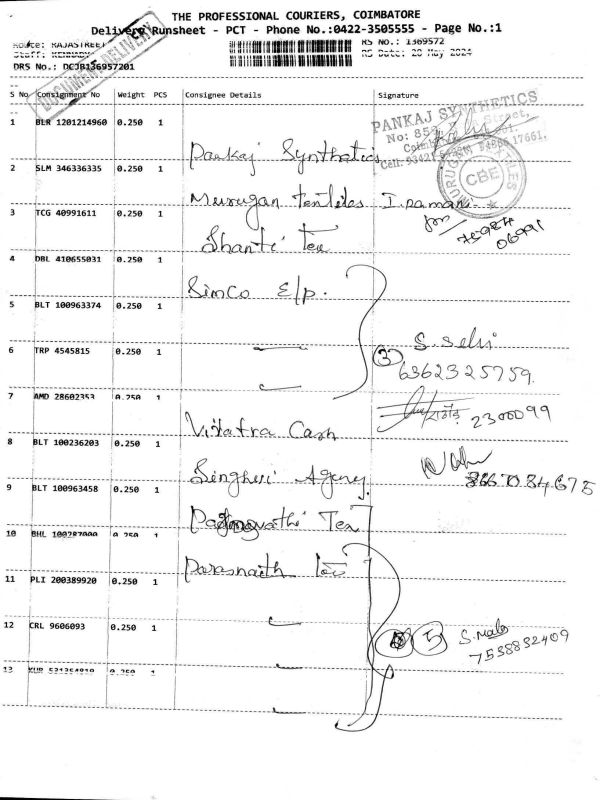 THE PROFESSIONAL COURIERS, COIMBATORE
Delivery Runsheet - PCT - Phone No.:0422-3505555 - Page No.:1
Route: RAJASTREET
RS No.: 1369572
Staff: KENNADY
RS Date: 20 May 2024
DRS No.: DCJB136957201
DOCUMENT DELIVERY
S No Consignment No Weight PCS Consignee Details Signature
1 BLR 1201214960 0.250 1 Pankaj Synthetics
PANKAJ SYNTHETICS
2 SLM 346336335 0.250 1 Murugan Textiles
CBE
3 TCG 40991611 0.250 1 Shanti Tex
75987
06991
4 DBL 410655031 0.250 1 Simco E/p.
5 BLT 100963374 0.250 1
6 TRP 4545815 0.250 1
3 S. Selvi
6362325759.
7 AMD 28602353 0.250 1 Cash
2300099
8 BLT 100236203 0.250 1 Singhvi Agency.
9 BLT 100963458 0.250 1 Padmavathi Tex
10 BHL 0.250 1 Parasnath Tex
11 PLI 200389920 0.250 1
12 CRL 9606093 0.250 1
5 S. Mala
7538832409
13 0.250 1